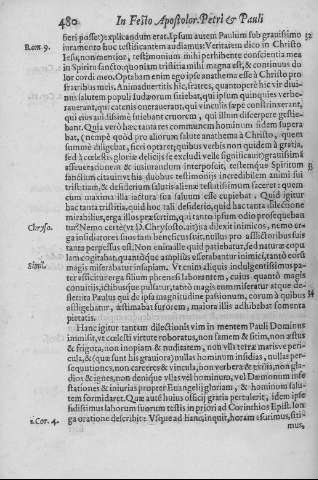 480 In Festo Apostolor. Petri & Pauli
fieri posset) explicandum erat. Ipsum autem Paulum sub grauissimo 32
Rom 9. iuramento huc testificantem audiamus: Veritatem dico in Christo
Iesu, non mentior, testimonium mihi perhibente conscientia mea
in Spiritu sancto: quoniam tristitia magna est, & continuus do
lor cordi meo. Optabam enim ego ipse anathema esse à Christo pro
fratribus meis. Animaduertitis hic, fratres, quantoperè hic vir diui-
nus salutem populi Iudæorum sitiebat, qui ipsum quinquies verbe-
rauerant, qui catenis onerauerant, qui vinculis sæpè constrinxerant,
qui eius audissimè sitiebant cruorem, qui illum discerpere gestie-
bant. Quia verò hæc tantares communem hominum fidem supera
bat, (nempè quòd pro aliorum salute anathema à Christo, quem
summè diligebat, fieri optaret; quibus verbis non quidem à gratia,
sed à cœlestis gloriæ delicijs se excludi velle significauit) grauissima
asseueratione & iusiurandum interposuit, testemque Spiritum 33
sanctum citauit: vt his duobus testimonijs incredibilem animi sui
tristitiam, & desiderium salutis alienæ testatissimum faceret: quem-
cum maxima illa iactura sua saluum esse cupiebat. Quid igitur
hac tanta tristitia, quid hoc tali desiderio, quid hac tanta dilectione
mirabilius, erga illos præsertim, qui tanto ipsum odio prosequeban
Chryso. tur? Nemo certè (vt D. Chrysosto. ait) ita dilexit inimicos, nemo er-
ga insidiatores suos tam beneficus fuit, nullus pro afflictoribus suis
tanta perpessus est. Non enim ille quid patiebatur, sed naturæ copu
lam cogitabat, quantóque amplius efferabantur inimici, tantò eorũ
Simil. magis miserabatur insipiam. Vt enim aliquis indulgentissimus pa-
ter afficitur erga filium phrenesi laborantem, cuius quantò magis
conuitijs, ictibusque pulsatur, tantò magis eum miseratur atque de-
flet: ita Paulus qui de ipsa magnitudine passionum, eorum à quibus 34
affligebatur, æstimabat furorem, maiora illis adhibebat fomenta
pietatis.
Hanc igitur tantam dilectionis vim in mentem Pauli Dominus
immisit, vt cœlesti virtute roboratus, non famem & sitim, non æstus
& frigora, non inopiam & nuditatem, non vlla terræ maris ve peri-
cula, & (quæ sunt his grauiora) nullas hominum insidias, nullas per-
sequutiones, non carceres & vincula, non verbera & exilia, non gla-
dios & ignes, non denique vllas vel hominum, vel Dæmonum infe
stationes & iniurias propter Euangelij gloriam, & hominum salu-
tem formidaret. Quæ autẽ huius officij gratia pertulerit, idem ipse
fidissimus laborum suorum testis in priori ad Corinthios Epist. lon
1. Cor. 4. ga oratione describit: Vsque ad hanc, inquit, horam esurimus, siti-
mus,